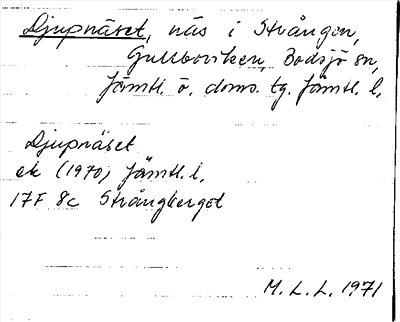 Djupnäset, näs i Strången,
Gulboviken, Bodsjö sn,
Jämtl. ö. doms. tg. Jämtl. l.
Djupnäset
ek (1970) Jämtl. l,
17F 8c Strångberget
M. L. L. 1971